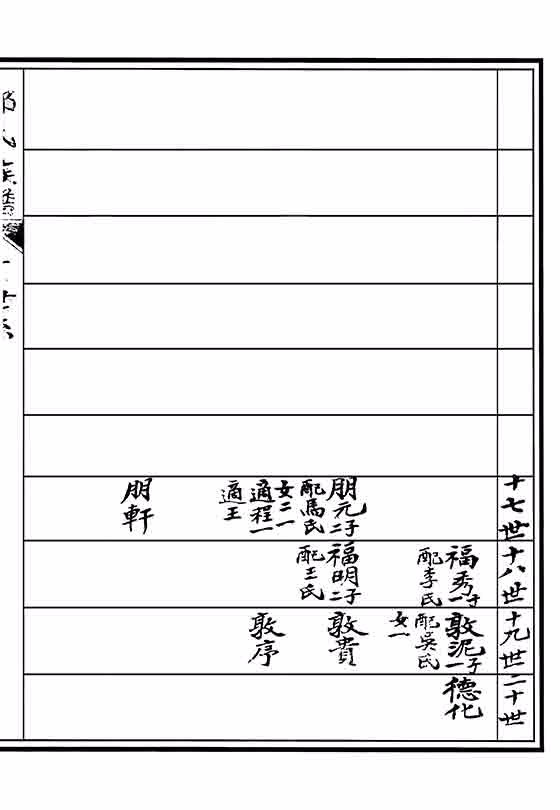 十七世
朋元二子
配馬氏
女二一
適程一
適王
朋軒
十八世
福秀一子
配李氏
福明二子
配王氏
十九世
敦泥一子
配吳氏
女一
敦貴
敦序
二十世
德化
氏族譜